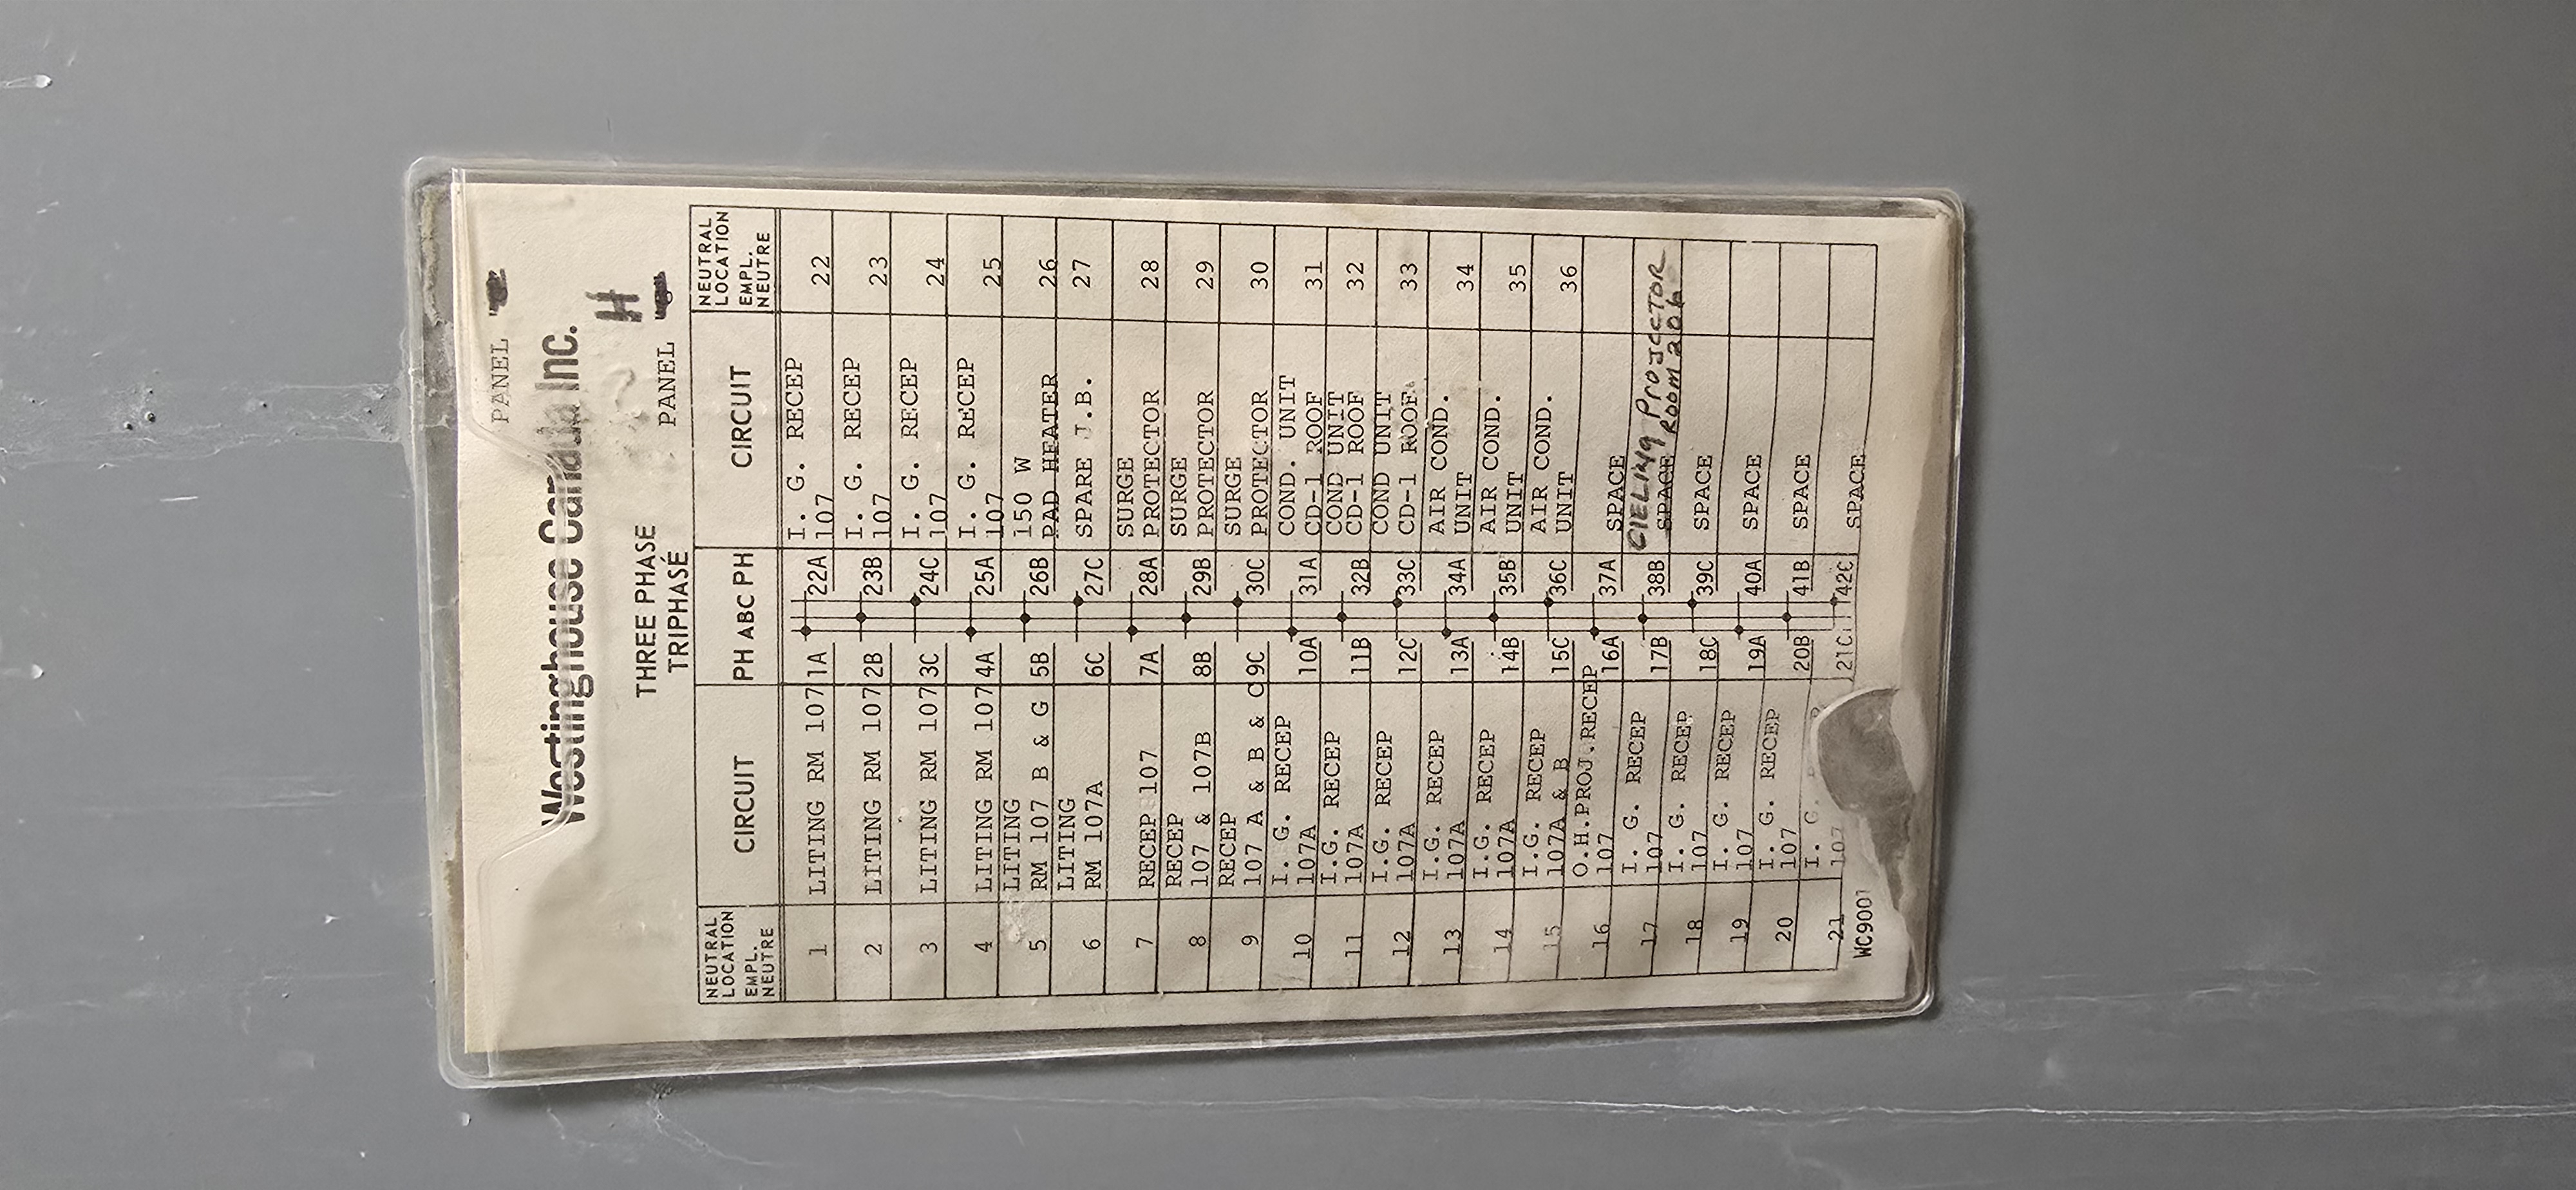 PANEL
Westinghouse Canada Inc.
H
THREE PHASE PANEL
TRIPHASÉ
NEUTRAL LOCATION EMPL. NEUTRE CIRCUIT PH ABC PH CIRCUIT NEUTRAL LOCATION EMPL. NEUTRE
1 LITING RM 107 1A 22A I. G. RECEP 107 22
2 LITING RM 107 2B 23B I. G. RECEP 107 23
3 LITING RM 107 3C 24C I. G. RECEP 107 24
4 LITING RM 107 4A 25A I. G. RECEP 107 25
5 LITING RM 107 B & G 5B 26B 150 W PAD HEATER 26
6 LITING RM 107A 6C 27C SPARE J.B. 27
7 RECEP 107 7A 28A SURGE PROTECTOR 28
8 RECEP 107 & 107B 8B 29B SURGE PROTECTOR 29
9 RECEP 107 A & B & C 9C 30C SURGE PROTECTOR 30
10 I. G. RECEP 107A 10A 31A COND. UNIT CD-1 ROOF 31
11 I.G. RECEP 107A 11B 32B COND UNIT CD-1 ROOF 32
12 I.G. RECEP 107A 12C 33C COND UNIT CD-1 ROOF 33
13 I.G. RECEP 107A 13A 34A AIR COND. UNIT 34
14 I.G. RECEP 107A 14B 35B AIR COND. UNIT 35
15 I.G. RECEP 107A & B 15C 36C AIR COND. UNIT 36
16 O.H.PROJ.RECEP 107 16A 37A SPACE
17 I. G. RECEP 107 17B 38B SPACE CIELING PROJECTOR ROOM 206
18 I. G. RECEP 107 18C 39C SPACE
19 I. G. RECEP 107 19A 40A SPACE
20 I. G. RECEP 107 20B 41B SPACE
21 I. G. 107 21C 42C SPACE
WC9001